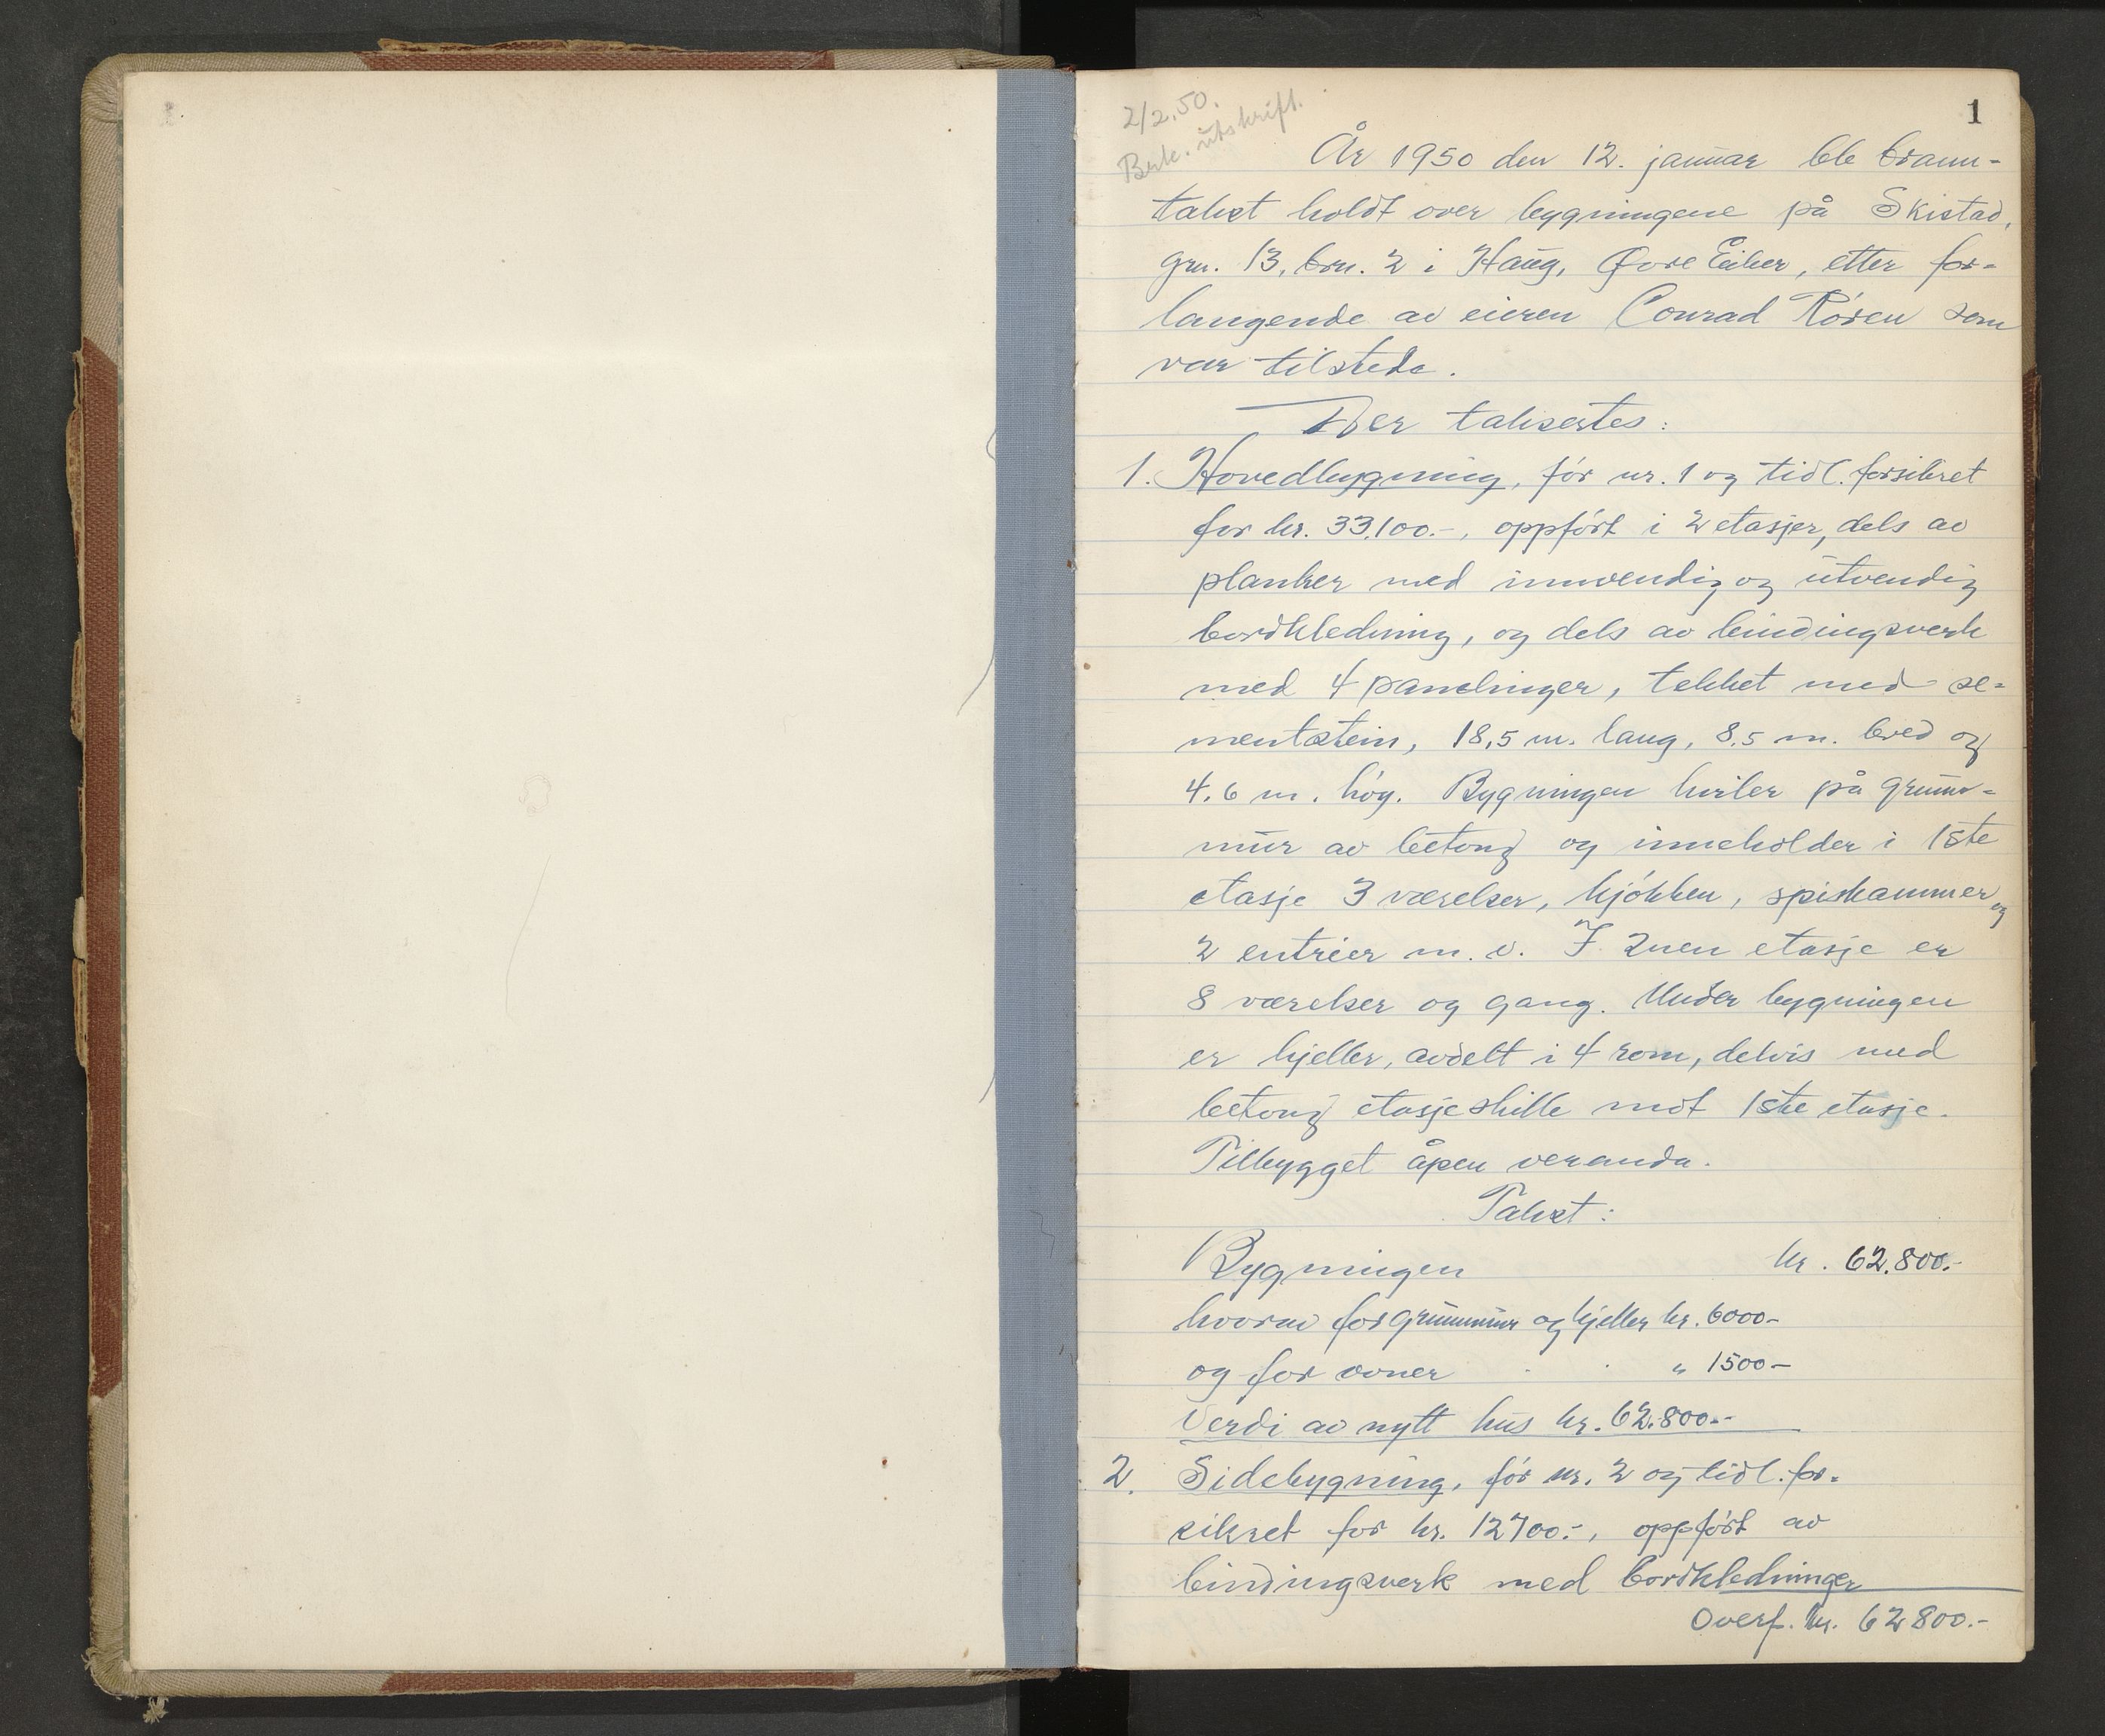 2/2.50.
Bek. utskrift.
1
År 1950 den 12. januar ble brann-
takst holdt over bygningene på Skistad,
grn. 13, brn. 2 i Haug, Øvre Eiker, etter for-
langende av eieren Conrad Røren som
var tilstede.
Der takseertes:
1. Hovedbygning, før nr. 1 og tidl. forsikret
for kr. 33.100.-, oppført i 2 etasjer, dels av
planker med innvendig og utvendig
bordkledning, og dels av bindingsverk
med 4 panelinger, tekket med se-
mentstein, 18,5 m. lang, 8,5 m. bred og
4.6 m. høy. Bygningen hviler på grunn-
mur av betong og inneholder i 1ste
etasje 3 værelser, kjøkken, spiskammer og
2 entréer m. v. I 2nen etasje er
8 værelser og gang. Under bygningen
er kjeller, avdelt i 4 rom, delvis med
betong etasjeskille mot 1ste etasje.
Tilbygget åpen veranda.
Takst:
Bygningen kr. 62.800.-
hvorav for grunnmur og kjeller kr. 6000-
og for ovner " 1500-
Verdi av nytt hus kr. 62.800.-
2. Sidebygning, før nr. 2 og tidl. for-
sikret for kr. 12700.-, oppført av
bindingsverk med bordkledninger
Overf. kr. 62800.-